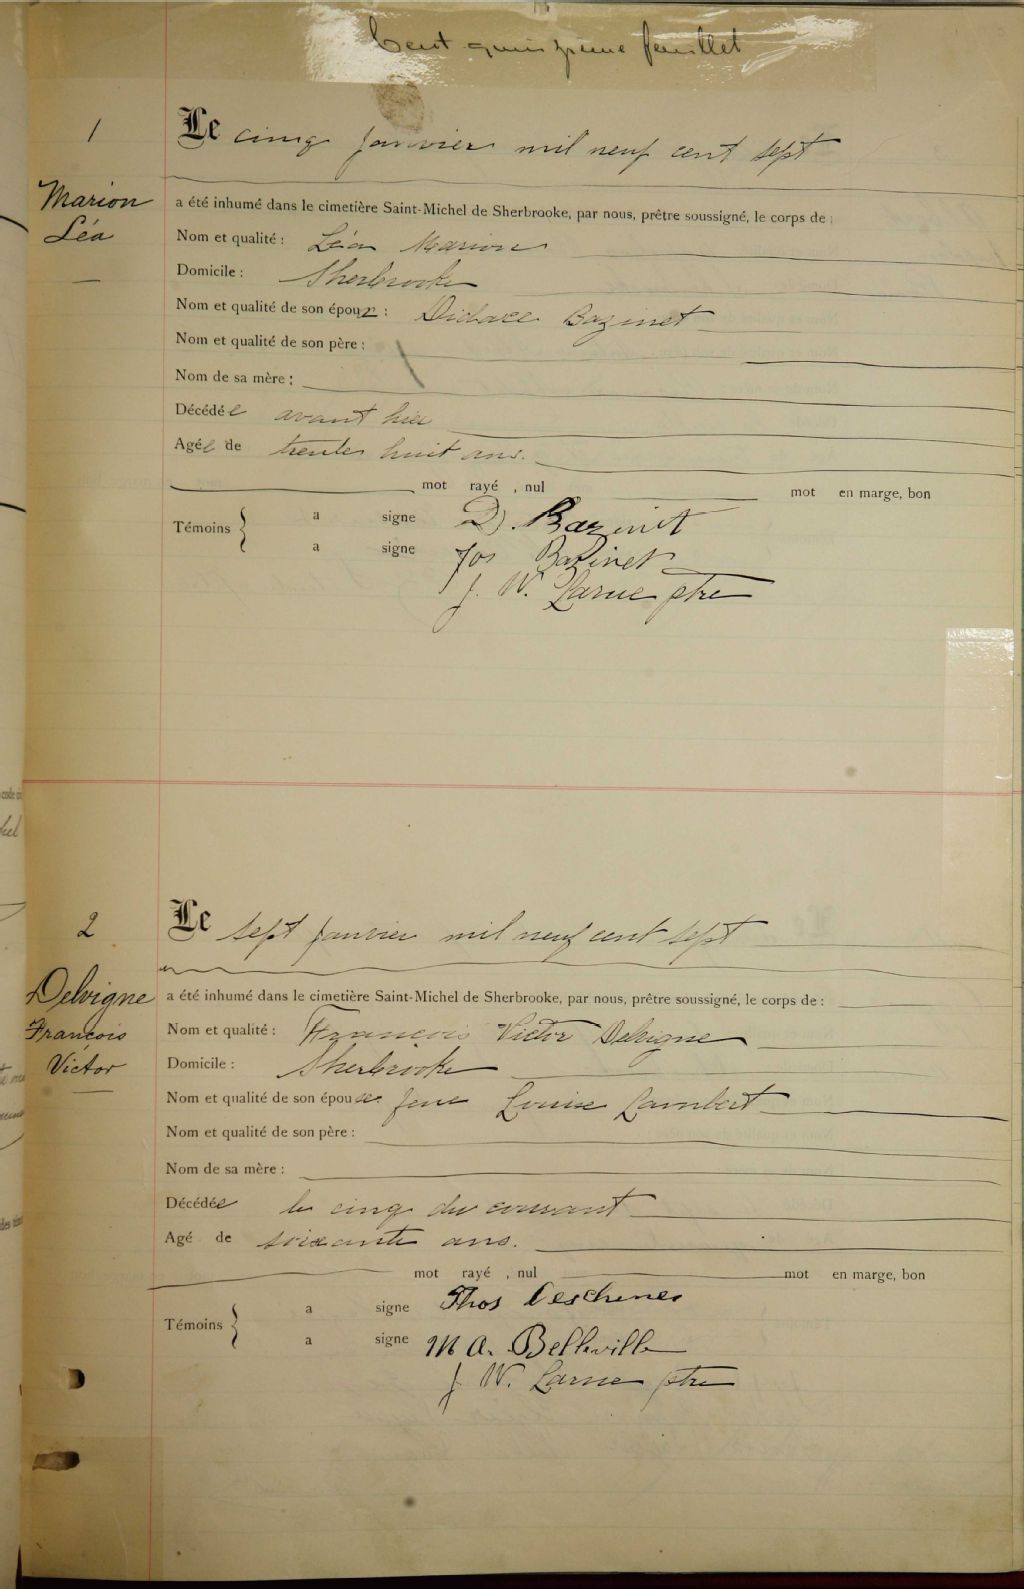 Cent quinzième feuillet
1
Le cinq janvier mil neuf cent sept
Marion
Léa
a été inhumé dans le cimetière Saint-Michel de Sherbrooke, par nous, prêtre soussigné, le corps de :
Nom et qualité : Léa Marion
Domicile : Sherbrooke
Nom et qualité de son époux : Didace Bazinet
Nom et qualité de son père :
Nom de sa mère :
Décédée avant hier
Agée de trente huit ans.
mot rayé , nul mot en marge, bon
Témoins { a signe D. Bazinet
a signe Jos Bazinet
J. W. Larue ptre
2
Le sept janvier mil neuf cent sept
Delvigne
François
Victor
a été inhumé dans le cimetière Saint-Michel de Sherbrooke, par nous, prêtre soussigné, le corps de :
Nom et qualité : François Victor Delvigne
Domicile : Sherbrooke
Nom et qualité de son épouse feue Louise Lambert
Nom et qualité de son père :
Nom de sa mère :
Décédée le cinq du courant
Agé de soixante ans.
mot rayé , nul mot en marge, bon
Témoins { a signe Thos Deschenes
a signe M A. Belleville
J. W. Larue ptre